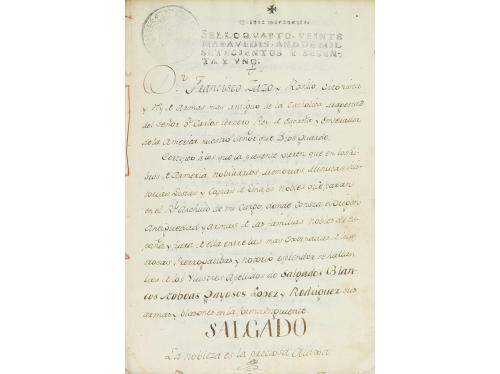 SELLO QVARTO, VEINTE
MARAVEDIS, AÑO DE MIL
SETECIENTOS Y SESEN-
TA Y VNO.
Dn Francisco Zazo y Rosillo Chronista
y Rey de Armas mas antiguo de la Catholica Magestad
del señor Dn Carlos tercero Rey de España y Emperador
de la America nuestro señor que Dios guarde.
Certifico a los que la presente vieren que en los li-
bros de Armeria nobiliarios Memorias Minutas His-
torias y Copias de Linajes nobles que paran
en el Rl Archivo de mi Cargo, donde consta el Origen
Antiguedad y armas de las familias nobles de Es-
paña y fuera de ella entre las mas
y notorio esplendor se hallan
las de los Yllustres Apellidos de Salgados Blan-
cos Noboas Puyosos Lopez y Rodriguez sus
armas y blasones en la forma siguiente.
SALGADO
La nobleza es la preciosa